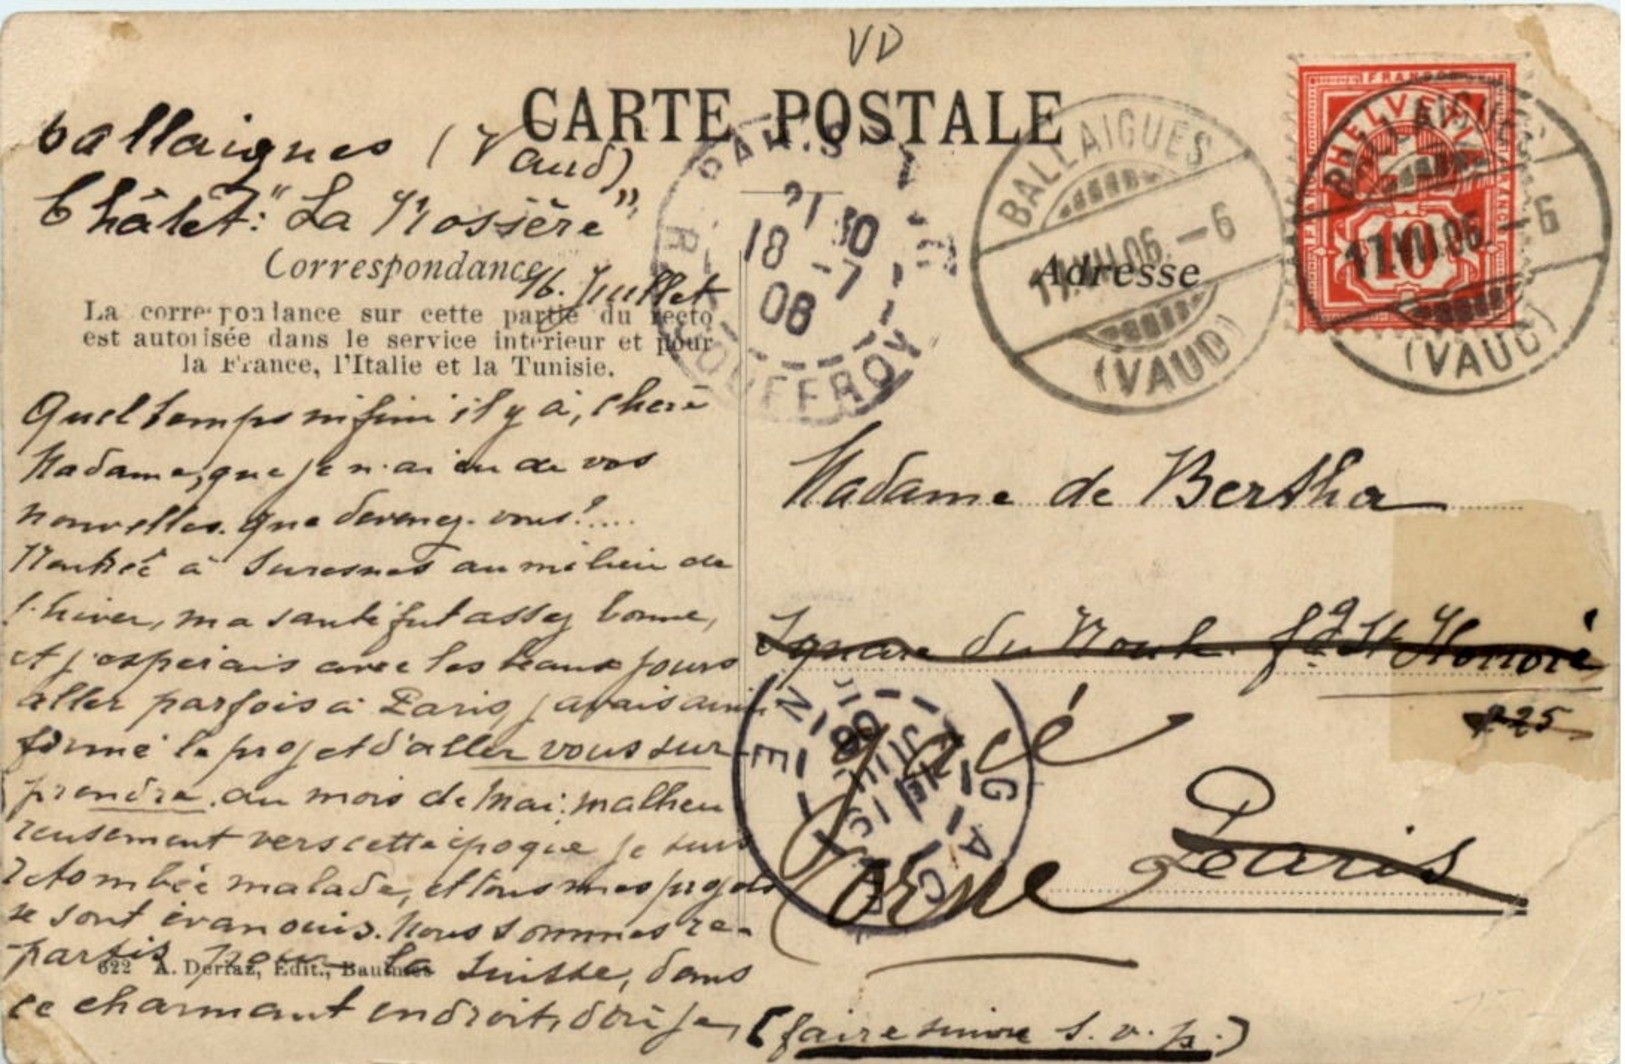 VD
CARTE POSTALE
Ballaigues (Vaud)
Châlet: "La Rosière"
Correspondance
16. Juillet
La correspondance sur cette partie du recto
est autorisée dans le service intérieur et pour
la France, l'Italie et la Tunisie.
Quel temps infini il y à, chère
Madame, que je n'ai eu de vos
nouvelles. Que devenez-vous?....
Rentrée à Suresnes au milieu de
l'hiver, ma santé fut assez bonne,
et j'espérais avec les beaux jours
aller parfois à Paris, j'avais ainsi
formé le projet d'aller vous sur-
prendre, au mois de Mai: malheu
reusement vers cette époque je suis
retombée malade, et tous mes projets
se sont évanouis. Nous sommes re-
partis pour la Suisse, dans
ce charmant endroit, d'où je,
(faire suivre s. v. p.)
622 A. Deriaz, Edit., Baulmes
PARIS
21 30
18 -7
06
R. JOUFFROY
BALLAIGUES
17.VII.06.-6
(VAUD)
Adresse
FRANCO
HELVETIA
10
BALLAIGUES
17.VII.06.-6
(VAUD)
Madame de Bertha
Square du Roule fg St Honoré
225
Paris
Gacé
Orne
GACÉ
ORNE